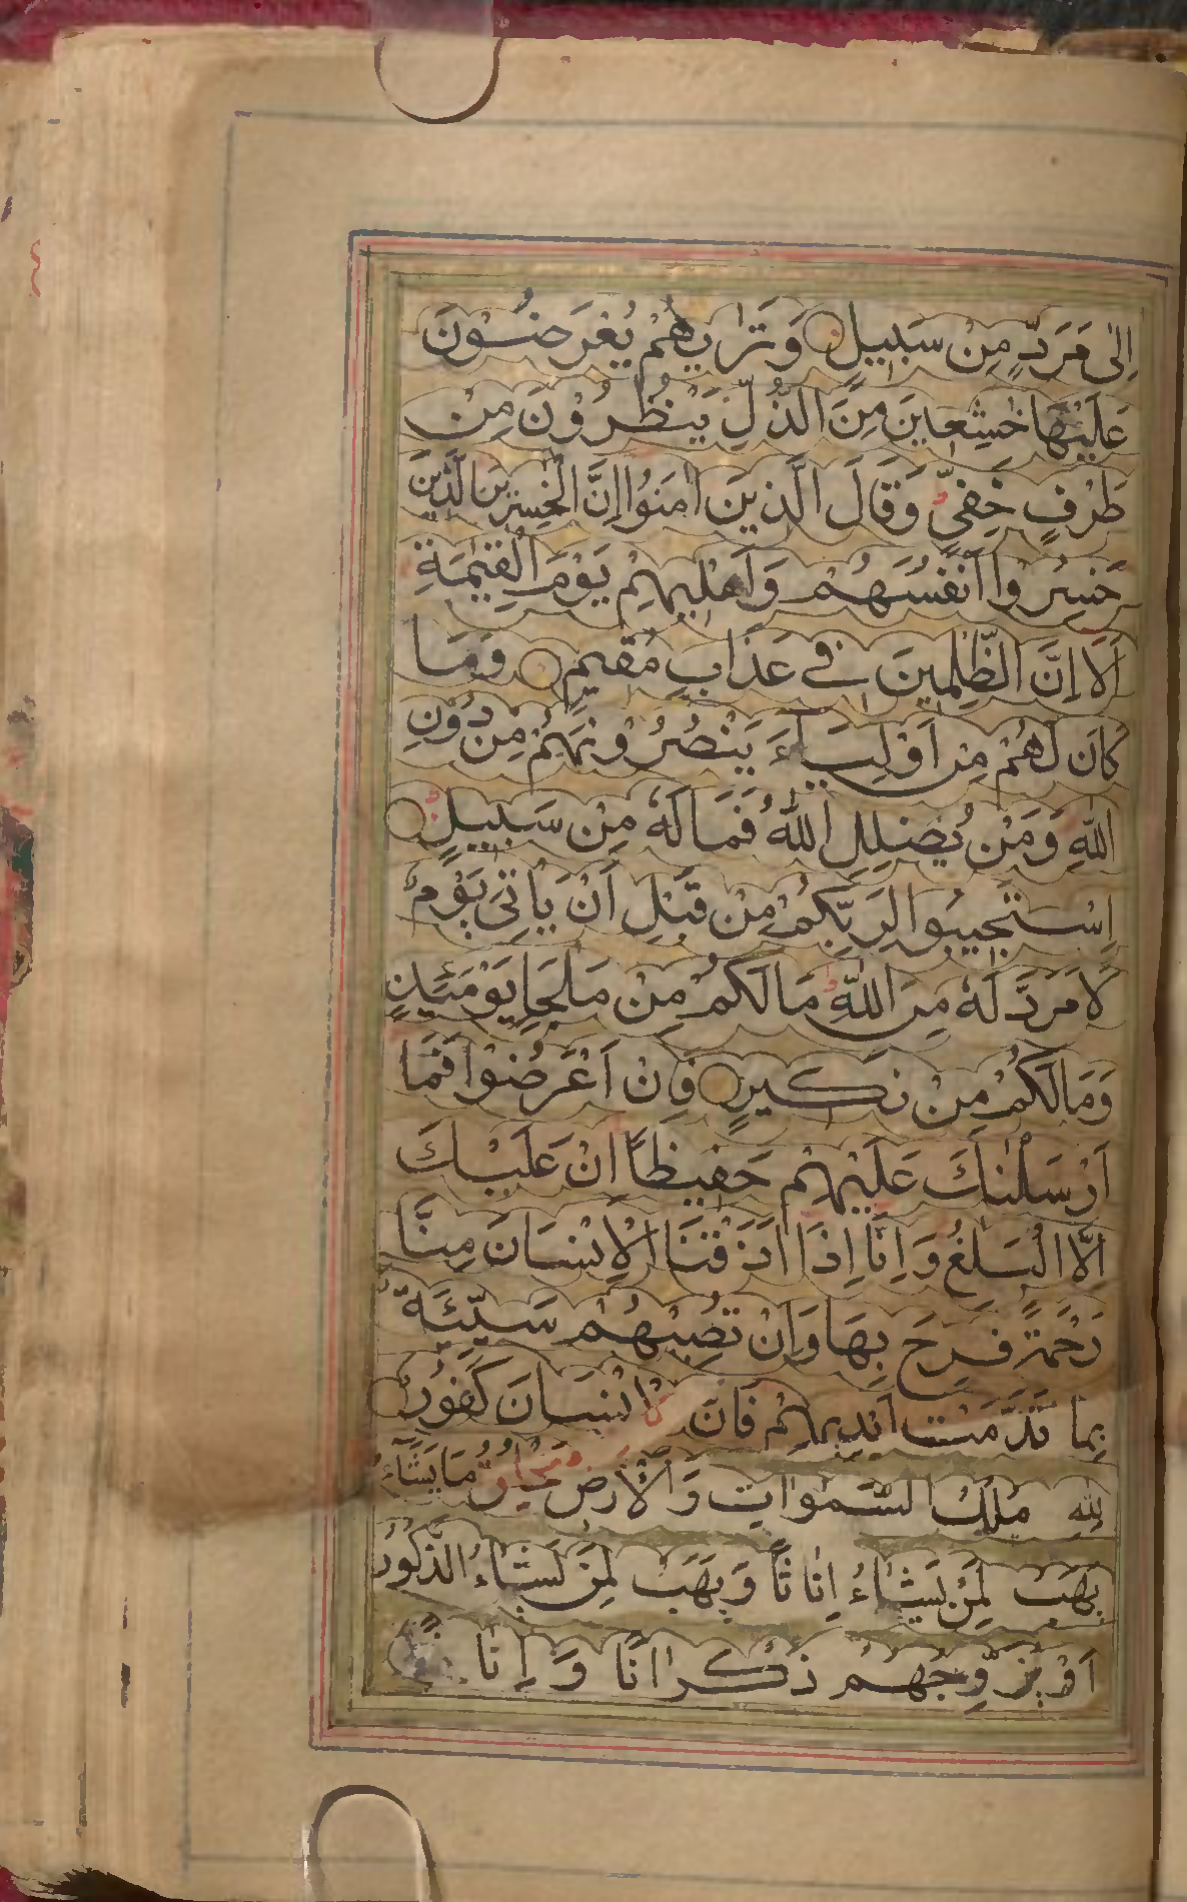 اِلٰى مَرَدٍّ مِنْ سَبِيلٍ وَتَرٰيهُمْ يُعْرَضُونَ
عَلَيْهَا خٰشِعِينَ مِنَ الذُّلِّ يَنْظُرُوْنَ مِنْ
طَرْفٍ خَفِيٍّ وَقَالَ الَّذِينَ اٰمَنُوا اِنَّ الْخٰسِرِينَ الَّذِينَ
خَسِرُوا اَنْفُسَهُمْ وَاَهْلِيهِمْ يَوْمَ الْقِيٰمَةِ
اَلَا اِنَّ الظّٰلِمِينَ فِي عَذَابٍ مُقِيمٍ وَمَا
كَانَ لَهُمْ مِنْ اَوْلِيَاءَ يَنْصُرُوْنَهُمْ مِنْ دُوْنِ
اللّٰهِ وَمَنْ يُضْلِلِ اللّٰهُ فَمَا لَهٗ مِنْ سَبِيلٍ
اِسْتَجِيبُوا لِرَبِّكُمْ مِنْ قَبْلِ اَنْ يَاْتِيَ يَوْمٌ
لَا مَرَدَّ لَهٗ مِنَ اللّٰهِ مَا لَكُمْ مِنْ مَلْجَاٍ يَوْمَئِذٍ
وَمَا لَكُمْ مِنْ نَكِيرٍ فَاِنْ اَعْرَضُوْا فَمَا
اَرْسَلْنٰكَ عَلَيْهِمْ حَفِيظًا اِنْ عَلَيْكَ
اِلَّا الْبَلٰغُ وَاِنَّا اِذَا اَذَقْنَا الْاِنْسَانَ مِنَّا
رَحْمَةً فَرِحَ بِهَا وَاِنْ تُصِبْهُمْ سَيِّئَةٌ
بِمَا قَدَّمَتْ اَيْدِيهِمْ فَاِنَّ الْاِنْسَانَ كَفُورٌ
لِلّٰهِ مُلْكُ السَّمٰوَاتِ وَالْاَرْضِ يَخْلُقُ مَا يَشَاءُ
يَهَبُ لِمَنْ يَشَاءُ اِنَاثًا وَيَهَبُ لِمَنْ يَشَاءُ الذُّكُورَ
اَوْ يُزَوِّجُهُمْ ذُكْرَانًا وَاِنَا